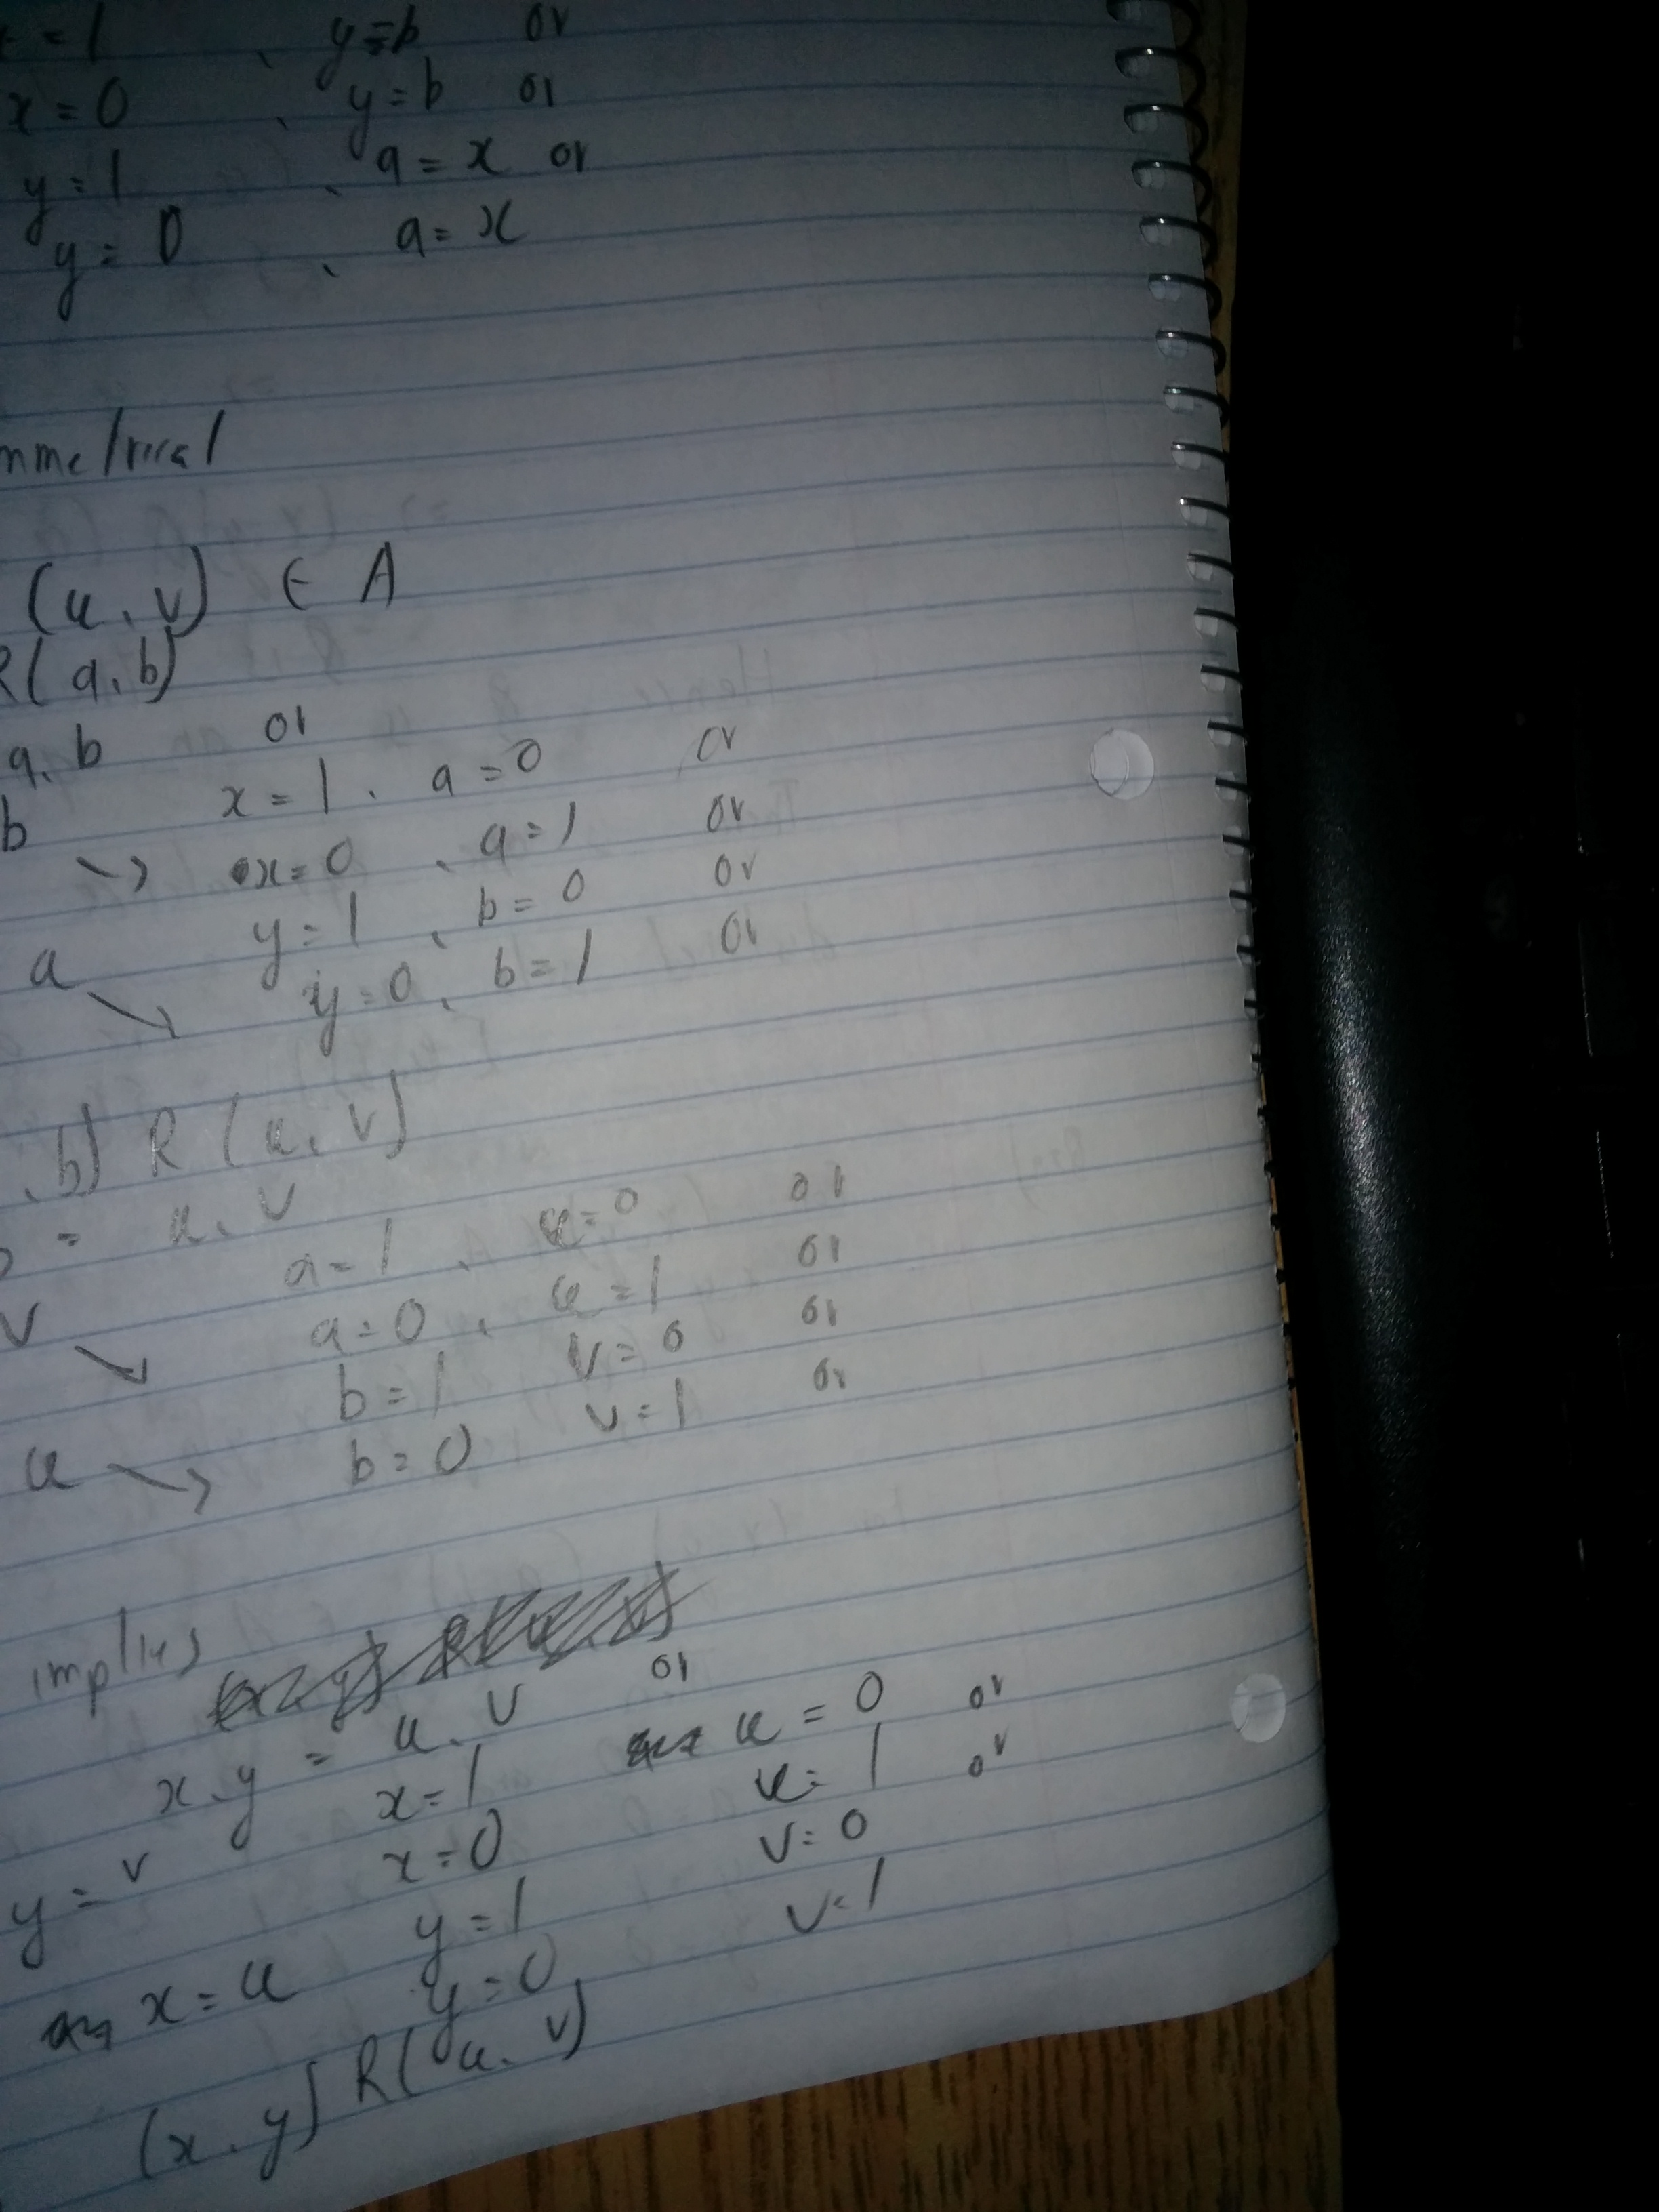 = 1 , y=b or
x = 0 , y=b or
y = 1 , a = x or
y = 0 , a = x
mmetrical
(u, v) ∈ A
R(a, b)
a, b or
b x = 1 , a = 0 or
→ x = 0 , a = 1 or
a y = 1 , b = 0 or
→ y = 0 , b = 1 or
, b) R (u, v)
= u, v
v a = 1 , u = 0 or
→ a = 0 , u = 1 or
b = 1 v = 0 or
u → b = 0 v = 1 or
implies
x, y = u, v or
y = v x = 1 u = 0 or
x = 0 u = 1 or
x = u y = 1 v = 0
y = 0 v = 1
(x, y) R(u, v)